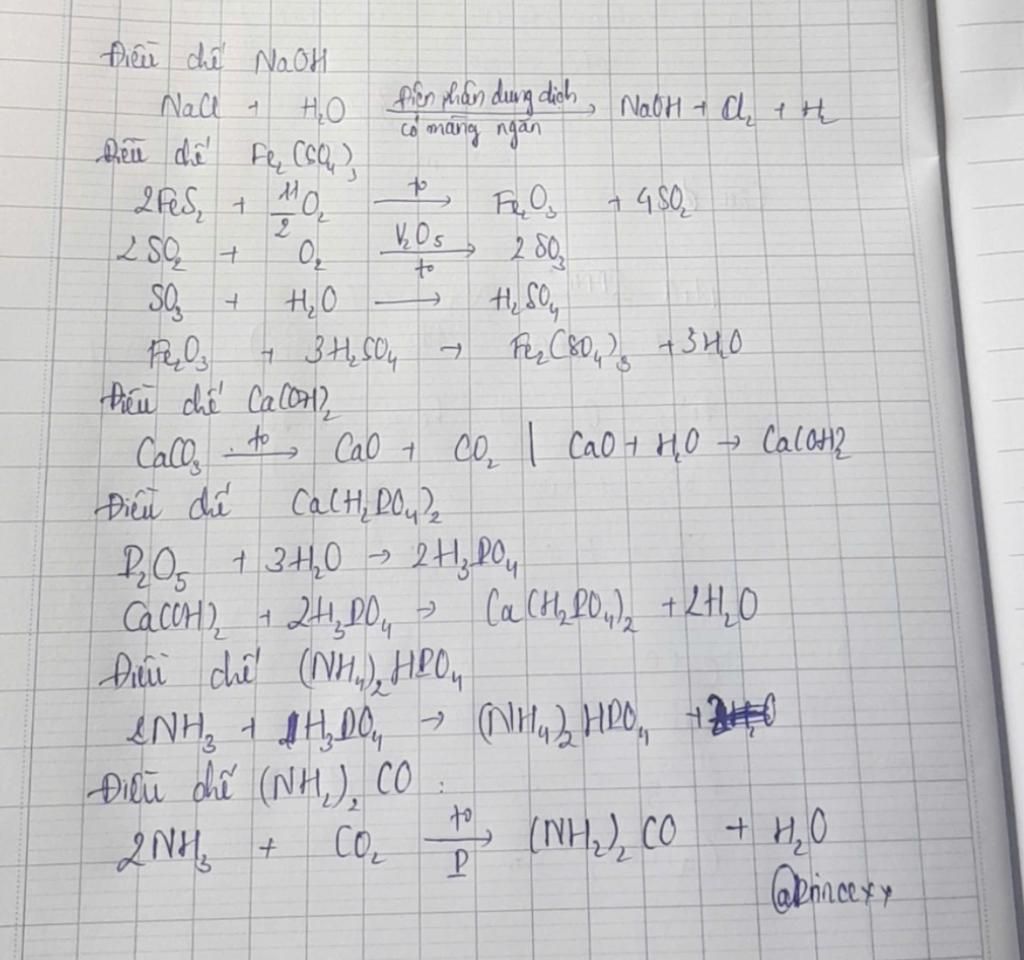 Điều chế NaOH
NaCl + H₂O điện phân dung dịch, có màng ngăn → NaOH + Cl₂ + H₂
Điều chế Fe₂(SO₄)₃
2FeS₂ + 11/2 O₂ –t°→ Fe₂O₃ + 4SO₂
2SO₂ + O₂ –V₂O₅, t°→ 2SO₃
SO₃ + H₂O → H₂SO₄
Fe₂O₃ + 3H₂SO₄ → Fe₂(SO₄)₃ + 3H₂O
Điều chế Ca(OH)₂
CaCO₃ –t°→ CaO + CO₂ | CaO + H₂O → Ca(OH)₂
Điều chế Ca(H₂PO₄)₂
P₂O₅ + 3H₂O → 2H₃PO₄
Ca(OH)₂ + 2H₃PO₄ → Ca(H₂PO₄)₂ + 2H₂O
Điều chế (NH₄)₂HPO₄
2NH₃ + H₃PO₄ → (NH₄)₂HPO₄ +
Điều chế (NH₂)₂CO :
2NH₃ + CO₂ –t°, P→ (NH₂)₂CO + H₂O
@Princexy